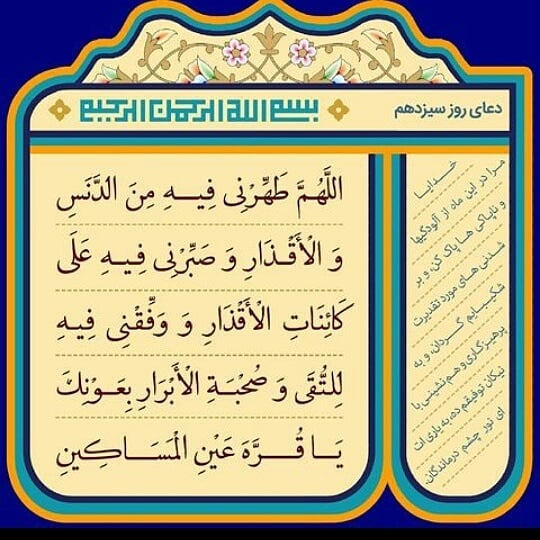 دعای روز سیزدهم
بسم الله الرحمن الرحیم
اللَّهُمَّ طَهِّرْنِی فِیـهِ مِنَ الدَّنَسِ
وَ الْأَقْـذَارِ وَ صَبِّرْنِی فِیـهِ عَلَی
كَائِنَاتِ الْأَقْذَارِ وَ وَفِّقْنِی فِیهِ
لِلتُّقَی وَ صُحْبَةِ الْأَبْرَارِ بِعَـوْنِكَ
یَـا قُـرَّةَ عَیْنِ الْمَسَـاكِینِ
خـدایـا
مرا در این ماه از آلودگیها
و ناپاکی هـا پاک کن، و بر
شدنی های مورد تقدیرت
شکیبـایم گـردان، و به
پرهیزگاری و هم نشینی با
نیکان توفیقم ده، به یاری ات
ای نور چشم درماندگان.